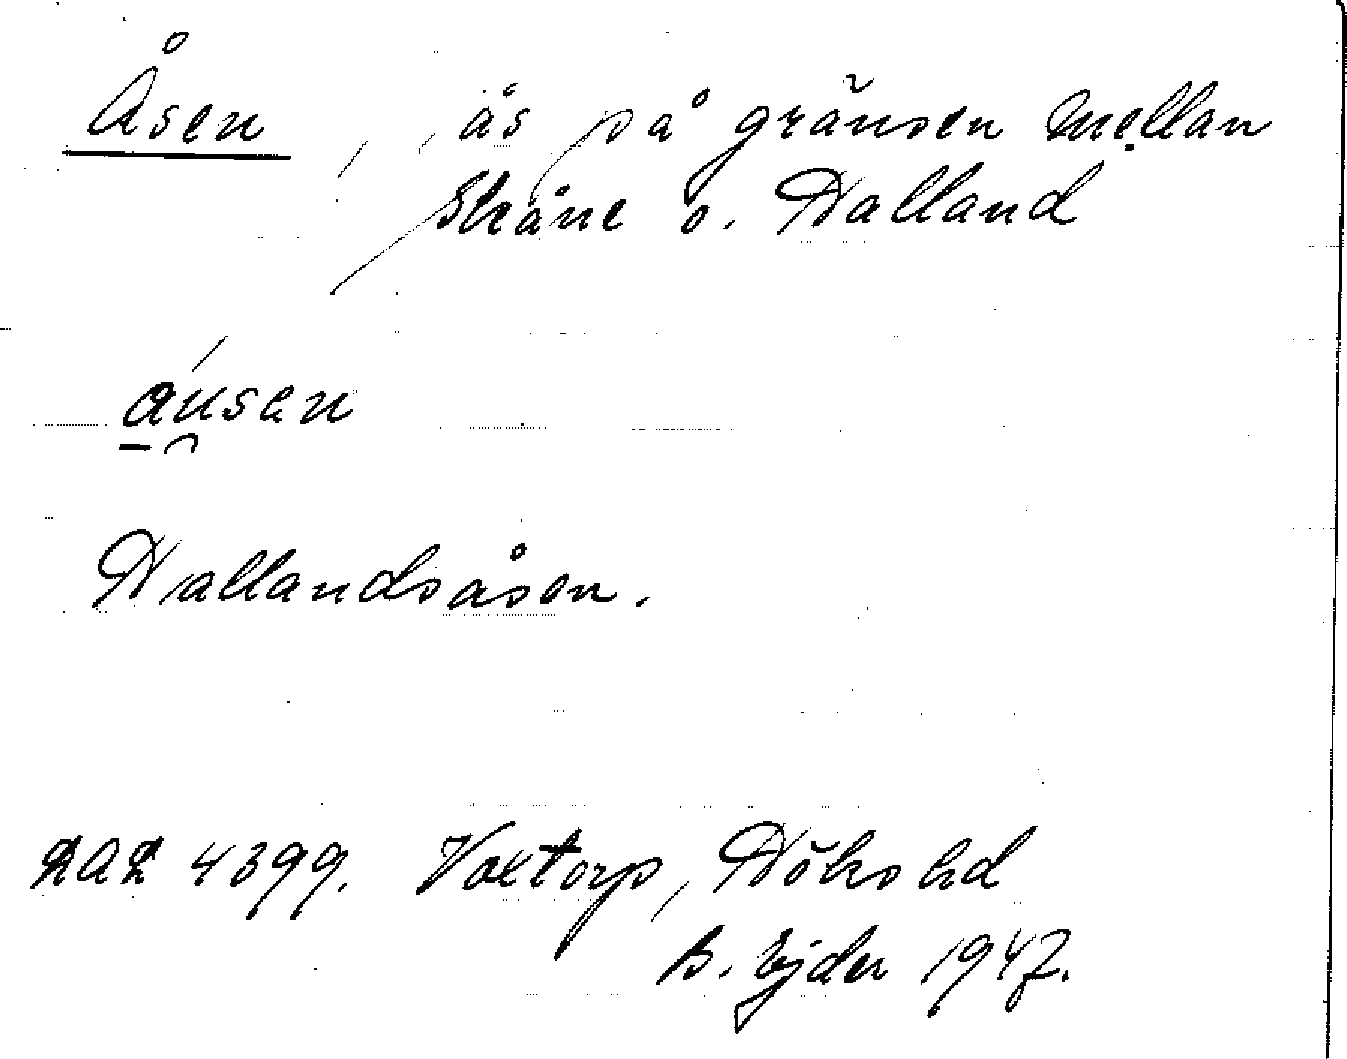 Åsen, ås på gränsen mellan
Skåne o. Halland
ausen
Hallandsåsen.
4399. Voxtorp, Höks hd
B. Ejder 1947.